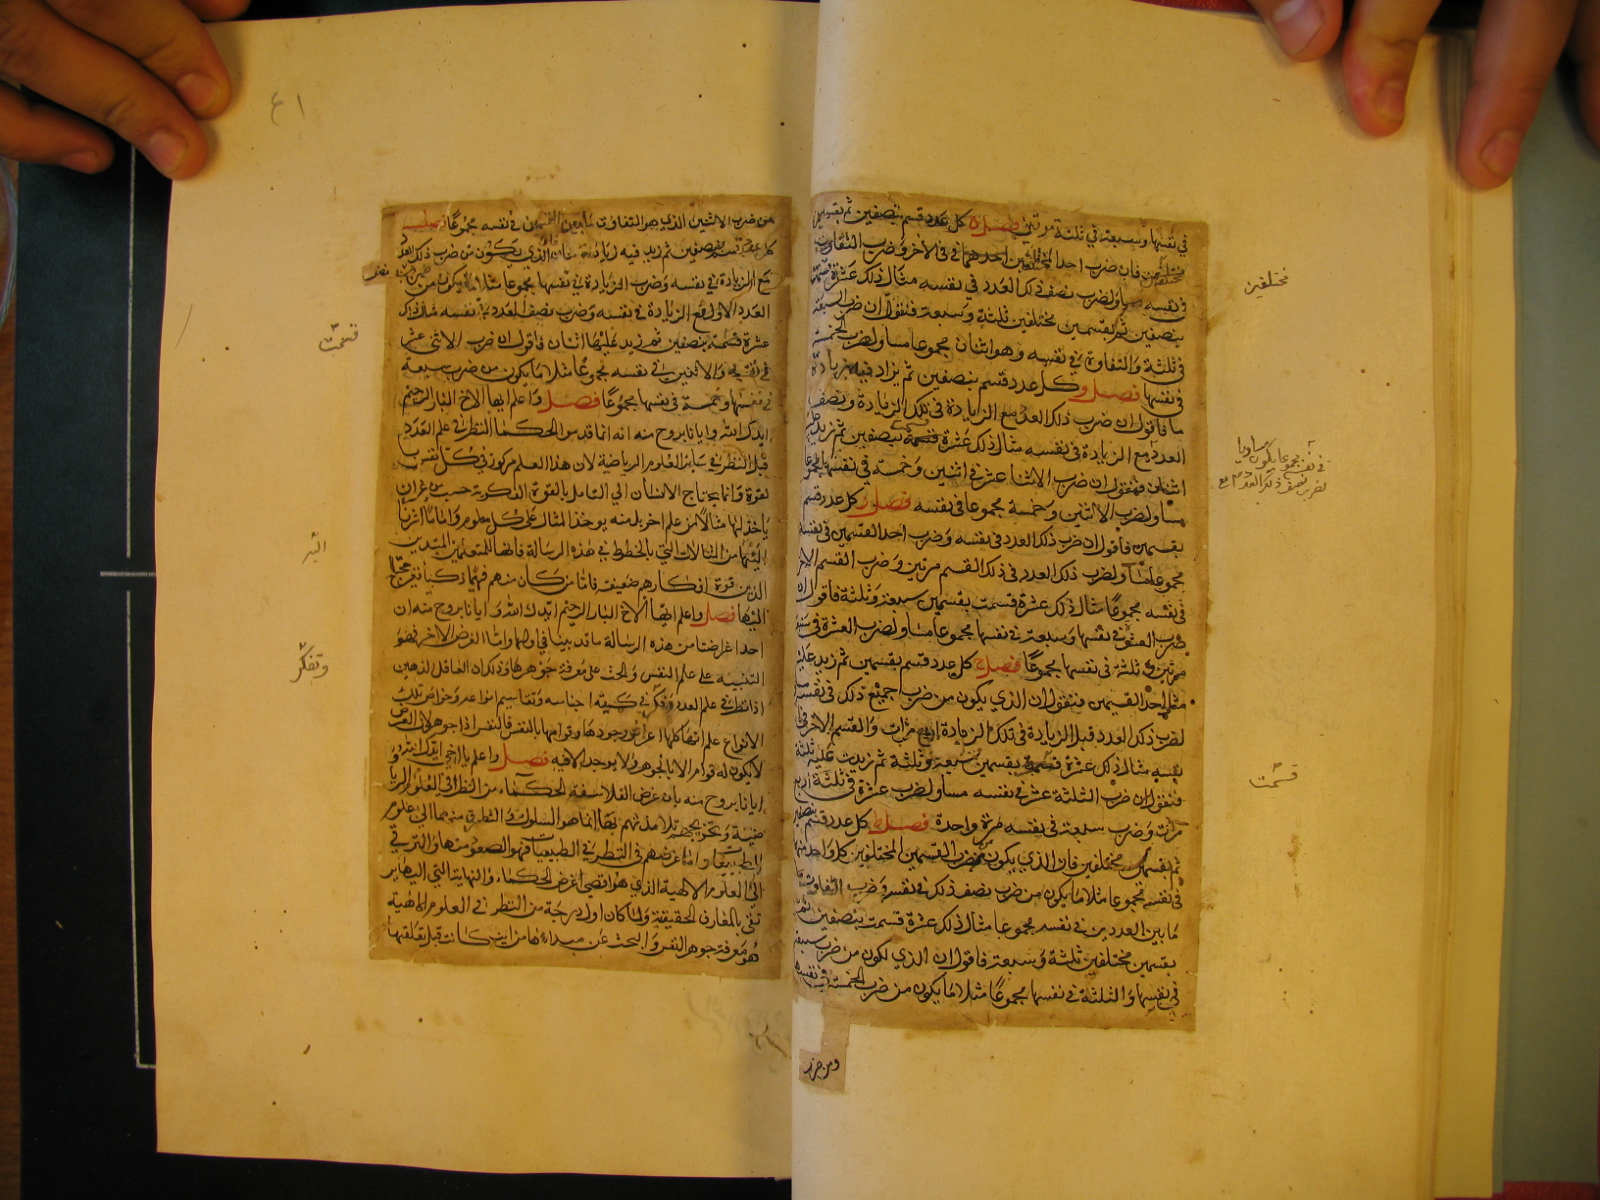 في نفسها وسبعة في ثلثة مرتين فصل ه كل عدد قسم بنصفين ثم بقسمين
مختلفين فان ضرب احد المختلفين احدهما في الاخر وضرب التفاوت
في نفسه مساو لضرب نصف ذلك العدد في نفسه مثال ذلك عشرة
بنصفين ثم بقسمين مختلفين ثلثة وسبعة فنقول ان ضرب السبعة
في ثلثة والتفاوت في نفسه وهو اثنان مجموعا مساو لضرب الخمسة
في نفسها فصل و كل عدد قسم بنصفين ثم يزاد فيه زيادة
ما فاقول ان ضرب ذلك العدد مع الزيادة في تلك الزيادة ونصف
العدد مع الزيادة في نفسه مثال ذلك عشرة بنصفين ثم زيد عليه
اثنان فنقول ان ضرب الاثنا عشر في اثنين وخمسة في نفسها مجموعا
مساو لضرب الاثنين وخمسة مجموعا في نفسه فصل ز كل عدد قسم
بقسمين فاقول ان ضرب ذلك العدد في نفسه وضرب احد القسمين في نفسه
مجموعا مساو لضرب ذلك العدد في ذلك القسم مرتين وضرب القسم الاخر
في نفسه مجموعا مثال ذلك عشرة قسمت بقسمين سبعة وثلثة فاقول ان
ضرب العشرة في نفسها وسبعة في نفسها مجموعا مساو لضرب العشرة في سبعة
مرتين و ثلثة في نفسها مجموعا فصل ح كل عدد قسم بقسمين ثم زيد عليه
مثل احد القسمين فنقول ان الذي يكون من ضرب جميع ذلك في نفسه
لضرب ذلك العدد قبل الزيادة في تلك الزيادة اربع مرات والقسم الاخر في
نفسه مثال ذلك عشرة بقسمين سبعة وثلثة ثم زيدت عليه ثلثة
فنقول ان ضرب الثلثة عشر في نفسه مساو لضرب عشرة في ثلثة اربع
مرات وضرب سبعة في نفسه مرة واحدة فصل ط كل عدد قسم بنصفين
ثم بقسمين مختلفين فان الذي يكون من ضرب القسمين المختلفين كل واحد منهما
في نفسه مجموعا مثلا ما يكون من ضرب نصف ذلك في نفسه وضرب التفاوت
ما بين العددين في نفسه مجموعا مثال ذلك عشرة قسمت بنصفين ثم
بقسمين مختلفين ثلثة وسبعة فاقول ان الذي يكون من ضرب سبعة
في نفسها والثلثة في نفسها مجموعا مثلا ما يكون من ضرب الخمسة في نفسها
ومن ضرب
مختلفين
في نفسه مجموعا يكون مساويا
لضرب نصف ذلك العدد مع
قسمت
٤١
من ضرب الاثنين الذي هو التفاوت ما بين القسمين في نفسه مجموعا فصل
كل عدد قسم بنصفين ثم زيد فيه زيادة ما فان الذي يكون من ضرب ذلك العدد
مع الزيادة في نفسه وضرب الزيادة في نفسها مجموعا مثلا ما يكون من ضرب نصف
العدد الاول مع الزيادة في نفسه وضرب نصف العدد في نفسه مثال ذلك
عشرة قسمت بنصفين ثم زيد عليها اثنان فاقول ان ضرب الاثني عشر
في نفسه والاثنين في نفسه مجموعا مثلا ما يكون من ضرب سبعة
في نفسها وخمسة في نفسها مجموعا فصل واعلم ايها الاخ البار الرحيم
ايدك الله وايانا بروح منه انه انما قدمو الحكما النظر في علم العدد
قبل النظر في ساير العلوم الرياضية لان هذا العلم مركوز في كل نفس
بالقوة وانما يحتاج الانسان الى التامل بالقوة الفكرية حسب من غير ان
ياخذ لها مثالا من علم اخر بل منه يوخذ المثال على كل معلوم واما ما اشرنا
اليها من المثالات التي بالخطوط في هذه الرسالة فانها للمتعلمين المبتدين
الذين قوة افكارهم ضعيفة فاما من كان منهم فهما زكيا فغير محتاج
اليها فصل واعلم ايها الاخ البار الرحيم ايدك الله وايانا بروح منه ان
احد اغراضنا من هذه الرسالة ما قد بينا في اولها واما الغرض الاخر فهو
التنبيه على علم النفس والحث على معرفة جوهرها وذلك ان العاقل الذهين
اذا نظر في علم العدد وفكر في كمية اجناسه وتقاسيم انواعه وخواص تلك
الانواع علم انها كلها اعراض وجودها وقوامها بالنفس فالنفس اذا جوهر لان العرض
لا يكون له قوام الا بالجوهر ولا يوجد الا فيه فصل واعلم يا اخي ايدك الله و
ايانا بروح منه بان غرض الفلاسفة الحكماء من النظر في العلوم الريا
ضية وتخريجهم تلامذتهم بها انما هو السلوك و التطرق منها الى علوم
الطبيعيات واما غرضهم في النظر في الطبيعيات فهو الصعود منها والترقي
الى العلوم الالهية الذي هو اقصى غرض الحكماء والنهاية التي اليها ير
تقى بالمعارف الحقيقية ولما كان اول درجة من النظر في العلوم الالهية
هو معرفة جوهر النفس والبحث عن مبداءها من اين كانت قبل تعلقها
قسمت
اليه
وتفكر